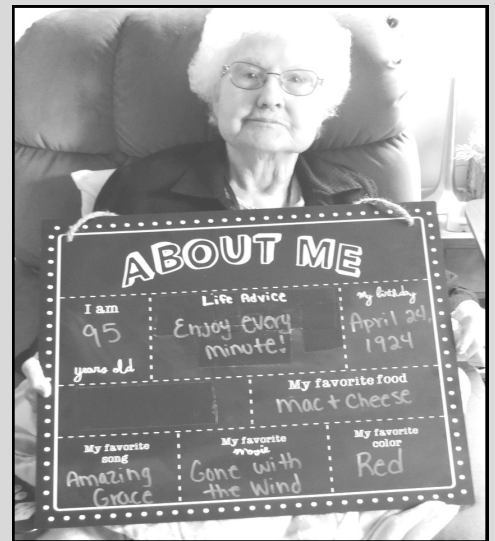 ABOUT ME
I am
95
years old
Life Advice
Enjoy every
minute!
My birthday
April 24,
1924
My favorite food
Mac + Cheese
My favorite
song
Amazing
Grace
My favorite
movie
Gone with
the Wind
My favorite
color
Red